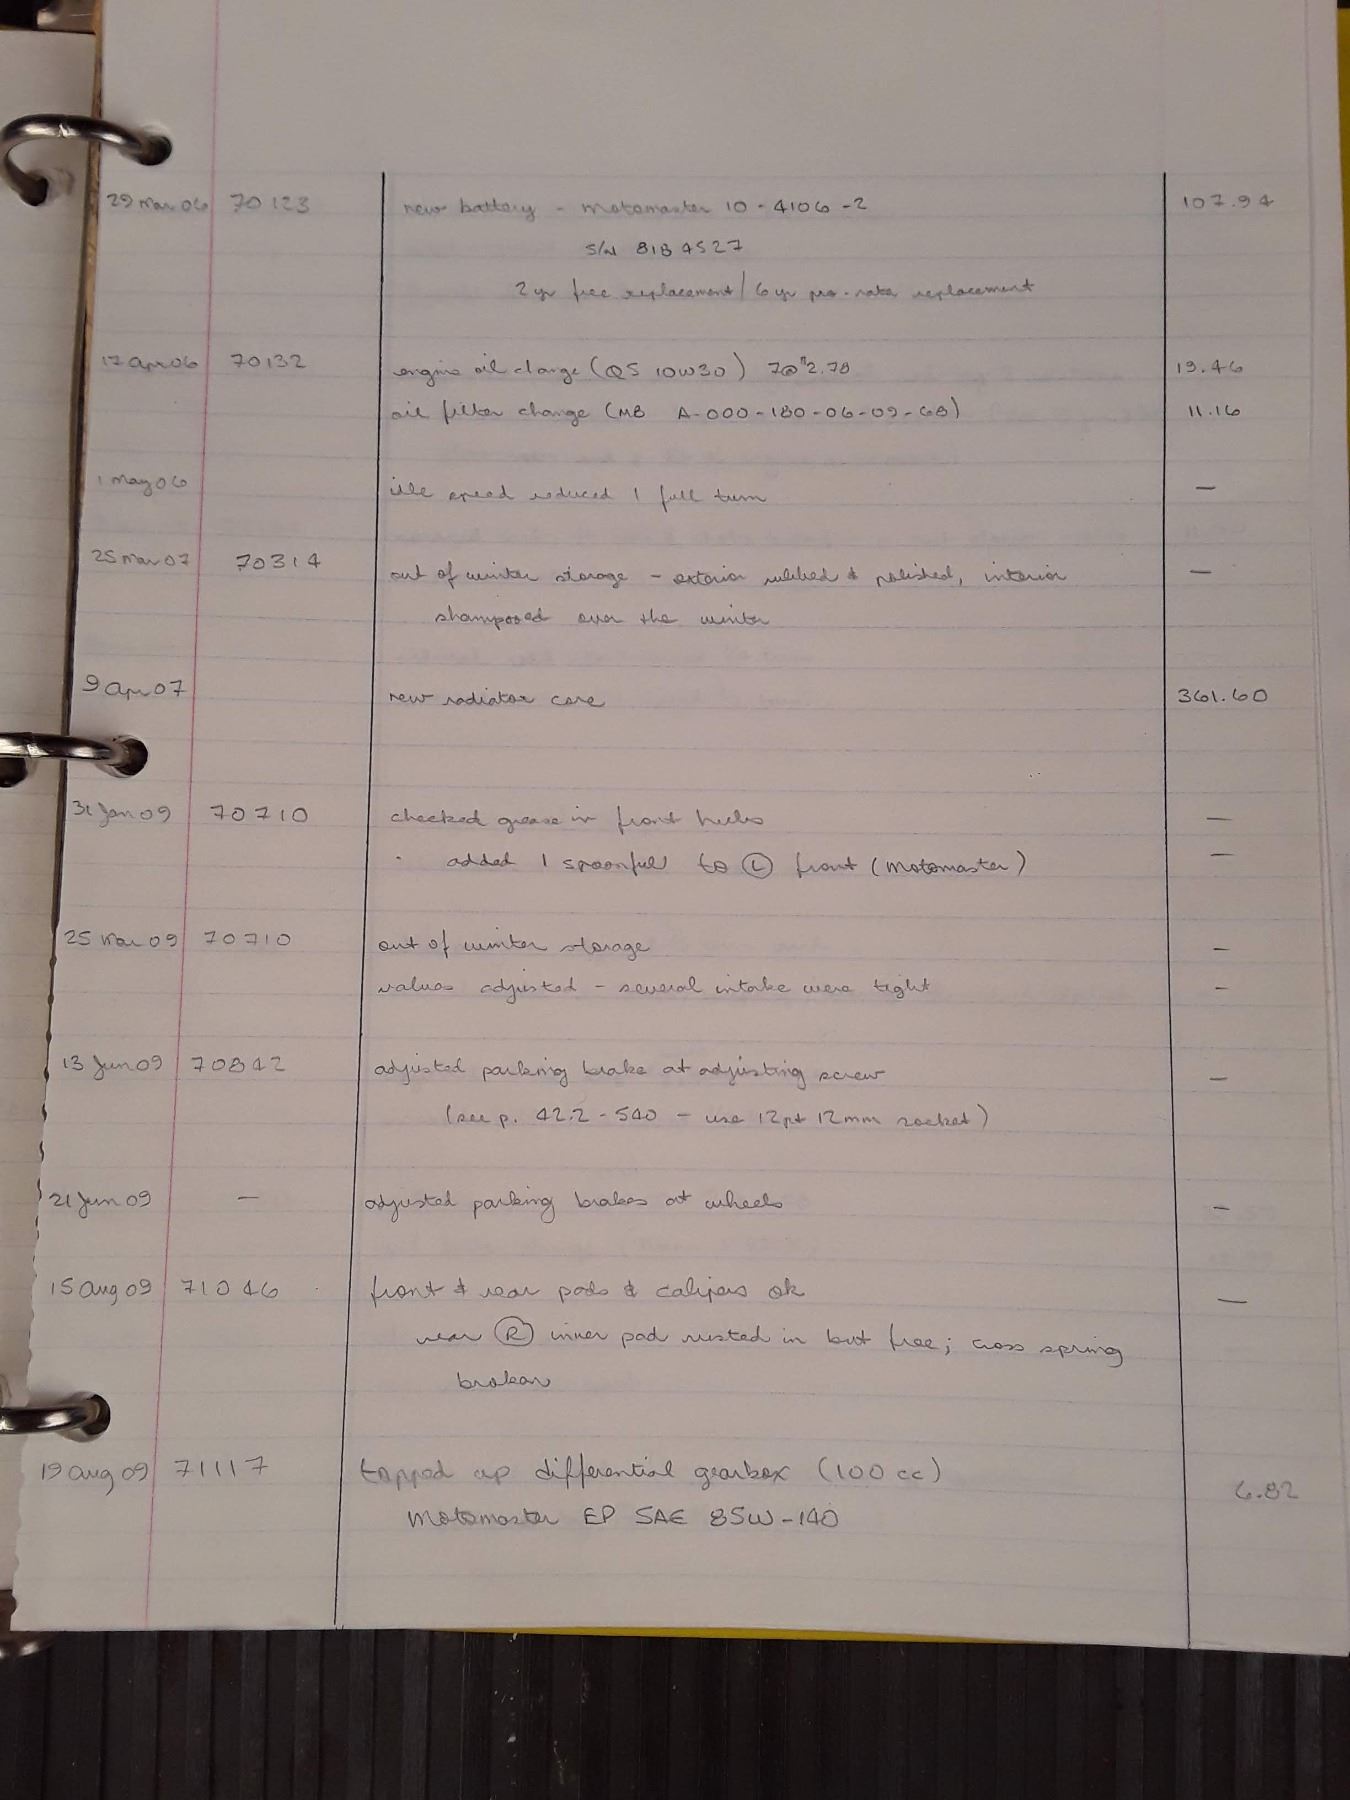 29 Mar 06 70123 new battery - Motomaster 10-4106-2 107.94
S/N 818 4527
2 yr free replacement / 6 yr pro-rata replacement
17 Apr 06 70132 engine oil change (QS 10W30) 7@$2.78 19.46
oil filter change (MB A-000-180-06-09-68) 11.16
1 May 06 idle speed reduced 1 full turn —
25 Mar 07 70314 out of winter storage - exterior rubbed & polished, interior —
shampooed over the winter
9 Apr 07 new radiator core 361.60
31 Jan 09 70710 checked grease in front hubs —
added 1 spoonful to Ⓛ front (Motomaster) —
25 Mar 09 70710 out of winter storage —
valves adjusted - several intake were tight -
13 Jun 09 70842 adjusted parking brake at adjusting screw —
(see p. 42.2-540 - use 12pt 12mm socket)
21 Jun 09 — adjusted parking brakes at wheels —
15 Aug 09 71046 front & rear pads & calipers ok —
rear Ⓡ inner pad rusted in but free; cross spring
broken
19 Aug 09 71117 topped up differential gearbox (100 cc) 6.82
Motomaster EP SAE 85W-140